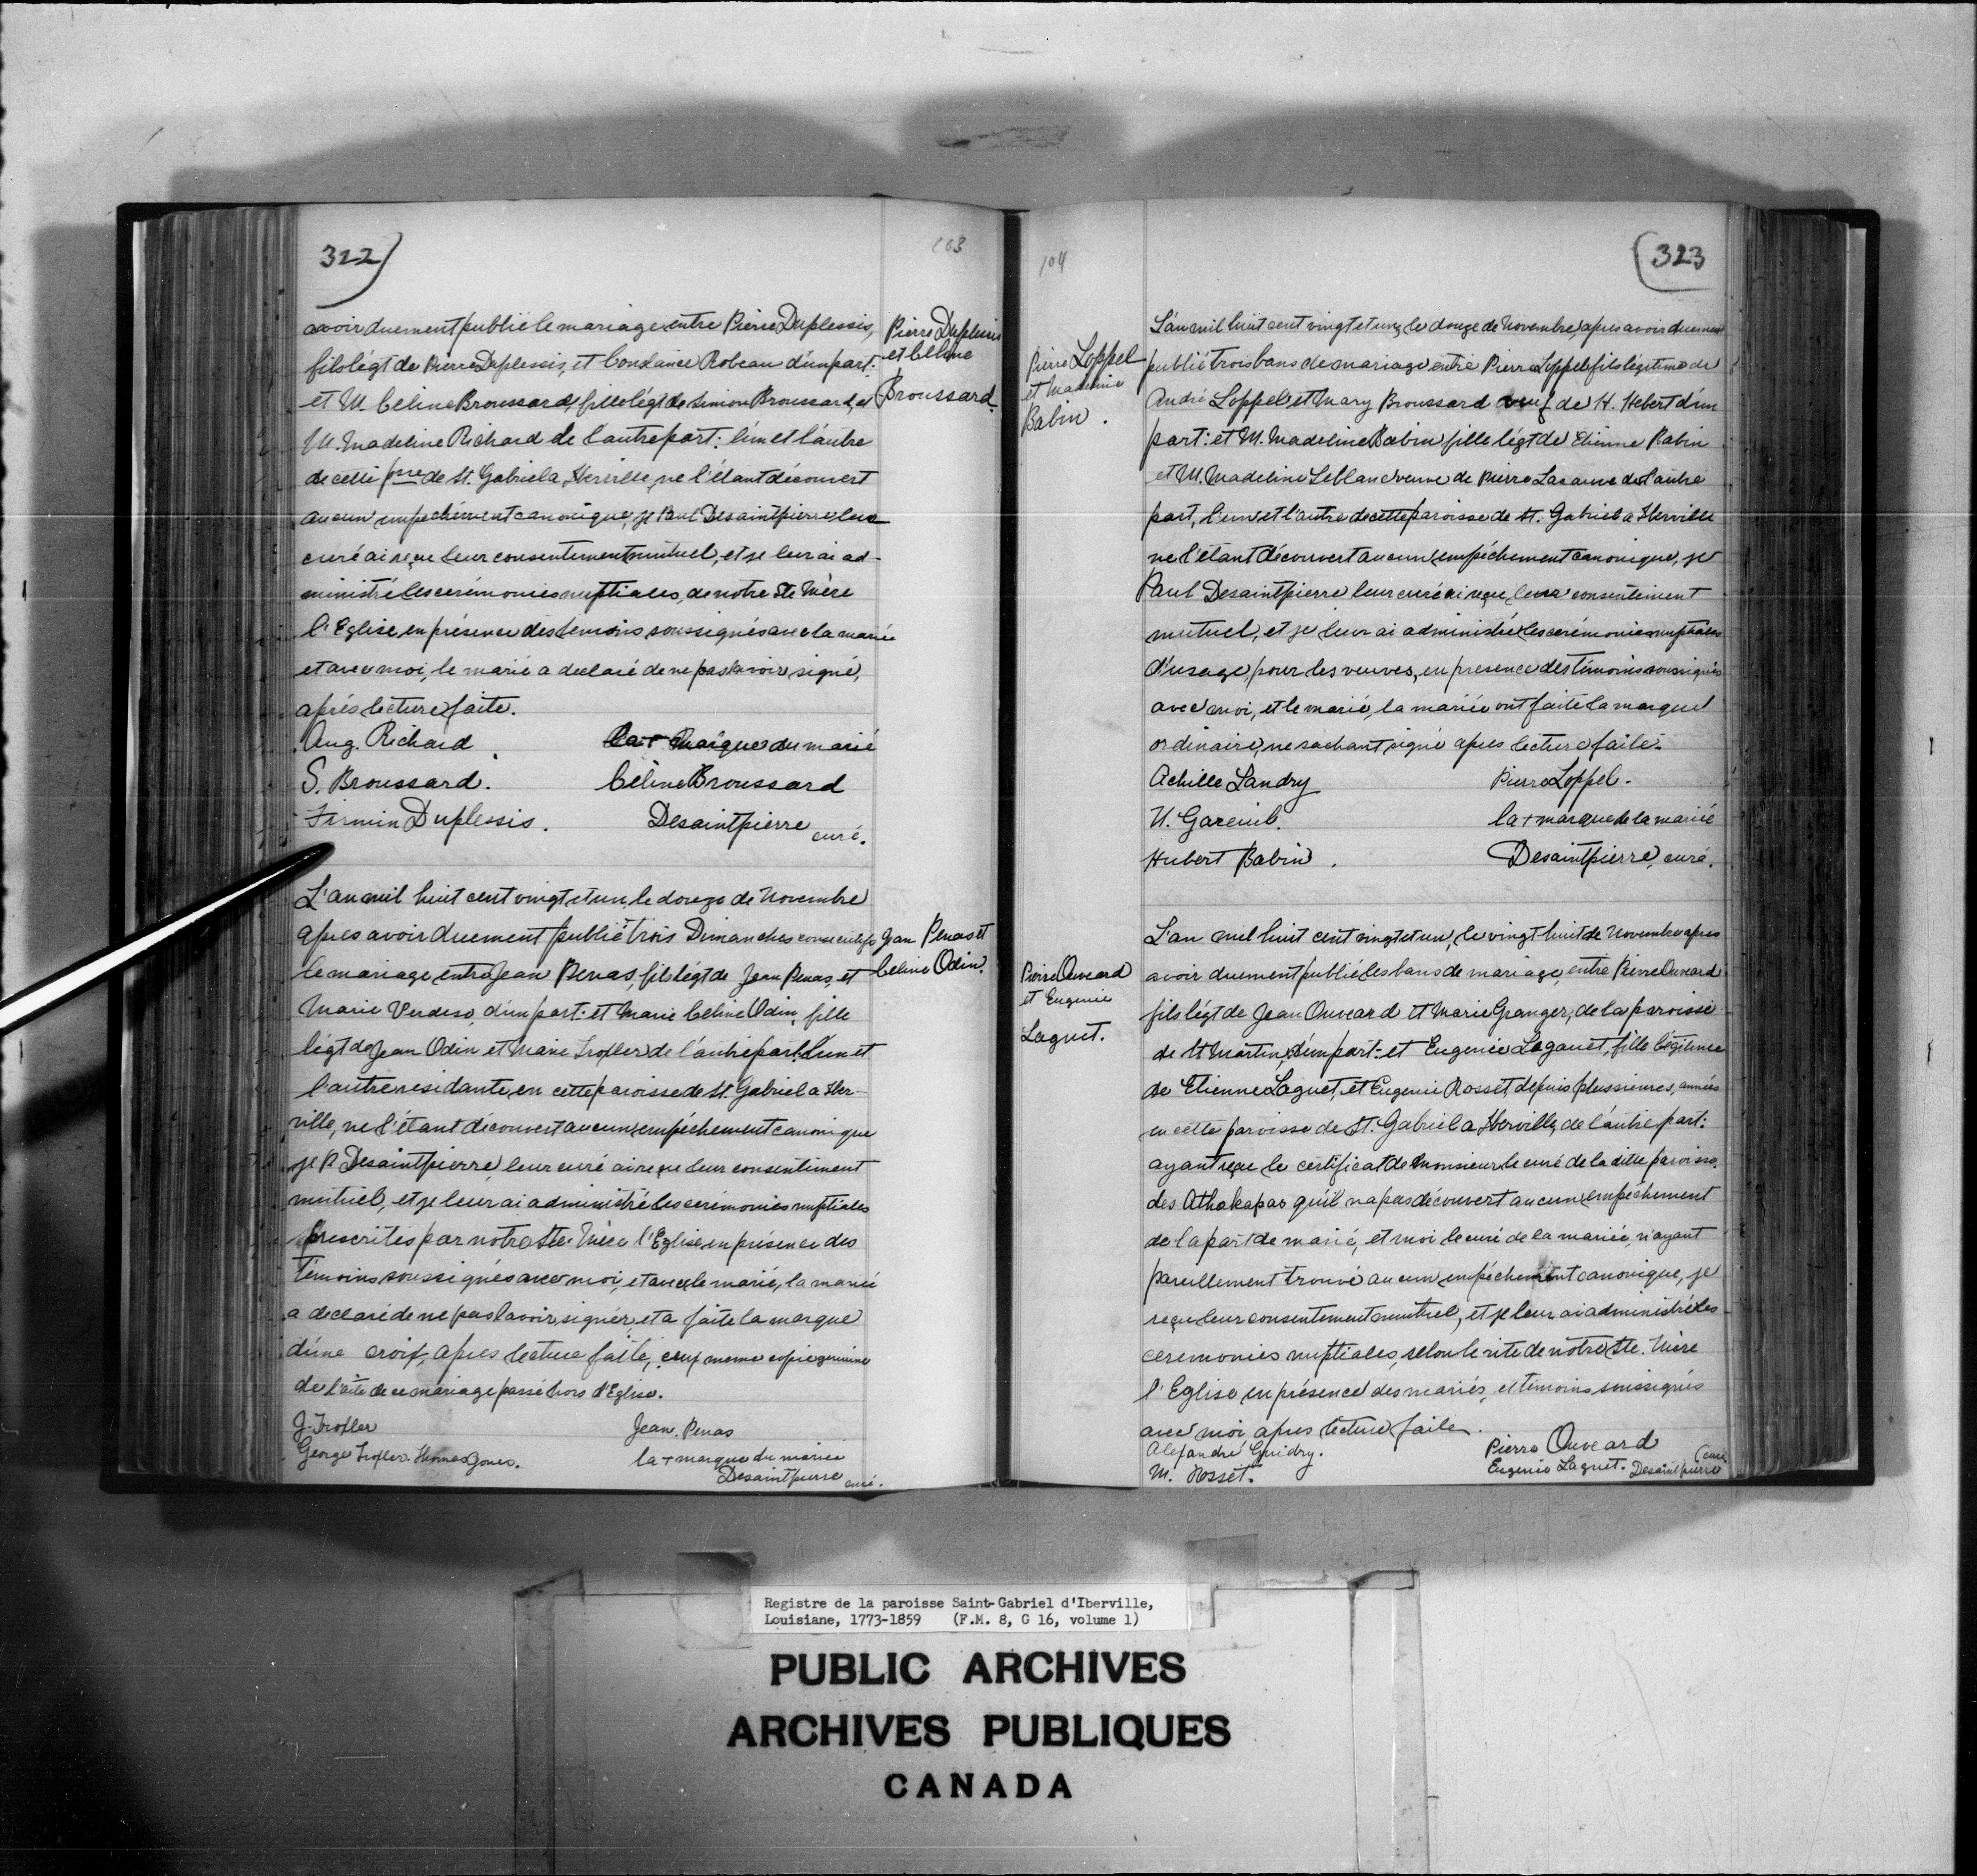 322
103
avoir duement publié le mariage entre Pierre Duplessis,
fils légt de Pierre Duplessis, et Constance Robeau d'un part:
et M. Celine Broussard, fille légt de Simon Broussard, et
M. Madeline Richard de l'autre part: l'un et l'autre
de cette psse de St. Gabriel a Iberville, ne l'étant découvert
aucun empéchément canonique, je Paul Desaintpierre leur
curé ai reçu leur consentement mutuel, et je leur ai ad-
ministré les cerémonies nuptiales, de notre Ste Mère
l'Eglise en présence des temoins soussignés avec la mariée
et avec moi, le marié a declaré de ne pas savoir signé,
aprés lecture faite.
Aug. Richard la + marque du marié
S. Broussard. Céline Broussard
Firmin Duplessis. Desaintpierre curé.
Pierre Duplessis
et Celine
Broussard.
L'an mil huit cent vingt et un, le douze de Novembre
apres avoir duement publié trois Dimanches consecutifs
le mariage entre Jean Penas, fils légt de Jean Penas, et
Marie Verdeso, d'un part: et Marie Celine Odin, fille
légt de Jean Odin et Marie Trofler de l'autre part: l'un et
l'autre residante en cette paroisse de St. Gabriel a Iber-
ville, ne l'étant découvert aucun empéchement canonique
je P. Desaintpierre, leur curé ai reçu leur consentiment
mutuel, et je leur ai administré les cerémonies nuptiales
prescrites par notre Ste. Mère l'Eglise, en présence des
témoins soussignés avec moi, et avec le marié, la mariée
a declaré de ne pas savoir signer, et a faite la marque
d'une croix, apres lecture faite, copie genuine
de l'acte de ce mariage passé hors d'Eglise.
J. Trofler Jean. Penas
George Trofler. Thomas Jones. la + marque du mariée
Desaintpierre curé.
Jean Penas et
Celine Odin.
104
323
Pierre Loppel
et Madeline
Babin.
L'an mil huit cent vingt et un, le douze de Novembre, apres avoir duement
publié trois bans de mariage entre Pierre Loppel fils légitime de
André Loppel et Mary Broussard veuf de H. Hebert d'un
part: et M. Madeline Babin fille légt de Etienne Babin
et M. Madeline Leblanc veuve de Pierre Lacasse de l'autre
part, l'un et l'autre de cette paroisse de St. Gabriel a Iberville
ne l'étant découvert aucun empéchement canonique, je
Paul Desaintpierre leur curé ai reçu, leur consentiment
mutuel, et je leur ai administré les cerémonies nuptiales
d'usage, pour les veuves, en presence des témoins soussignés
avec moi, et le marié, la mariée ont faite la marque
ordinaire, ne sachant signé apres lecture faite.
Achille Landry Pierre Loppel.
U. Gareuil. la + marque de la mariée
Hubert Babin. Desaintpierre, curé.
Pierre Ouveard
et Eugenie
Laguet.
L'an mil huit cent vingt et un, le vingt huit de Novembre apres
avoir duement publié les bans de mariage, entre Pierre Ouveard
fils légt de Jean Ouveard et Marie Granger, de la paroisse
de St Martin, d'un part: et Eugenie Laguet, fille légitime
de Etienne Laguet, et Eugenie Rosset, depuis plussieures, années
en cette paroisse de St. Gabriel a Iberville, de l'autre part:
ayant reçu le certificat de Monsieur le curé de la ditte paroisse,
des Athakapas qu'il n'a pas découvert aucun empéchement
de la part de marié, et moi le curé de la mariée, n'ayant
pareillement trouvé aucun empéchement canonique, je
reçu leur consentement mutuel, et je leur ai administré les
ceremonies nuptiales, selon le rite de nôtre Ste. Mère
l'Eglise en présence des mariés, et témoins soussignés
avec moi, apres lecture faite.
Alexandre Guidry. Pierre Ouveard
M. Rosset. Eugenie Laguet. Desaintpierre (curé
Registre de la paroisse Saint-Gabriel d'Iberville,
Louisiane, 1773-1859 (F.M. 8, G 16, volume 1)
PUBLIC ARCHIVES
ARCHIVES PUBLIQUES
CANADA